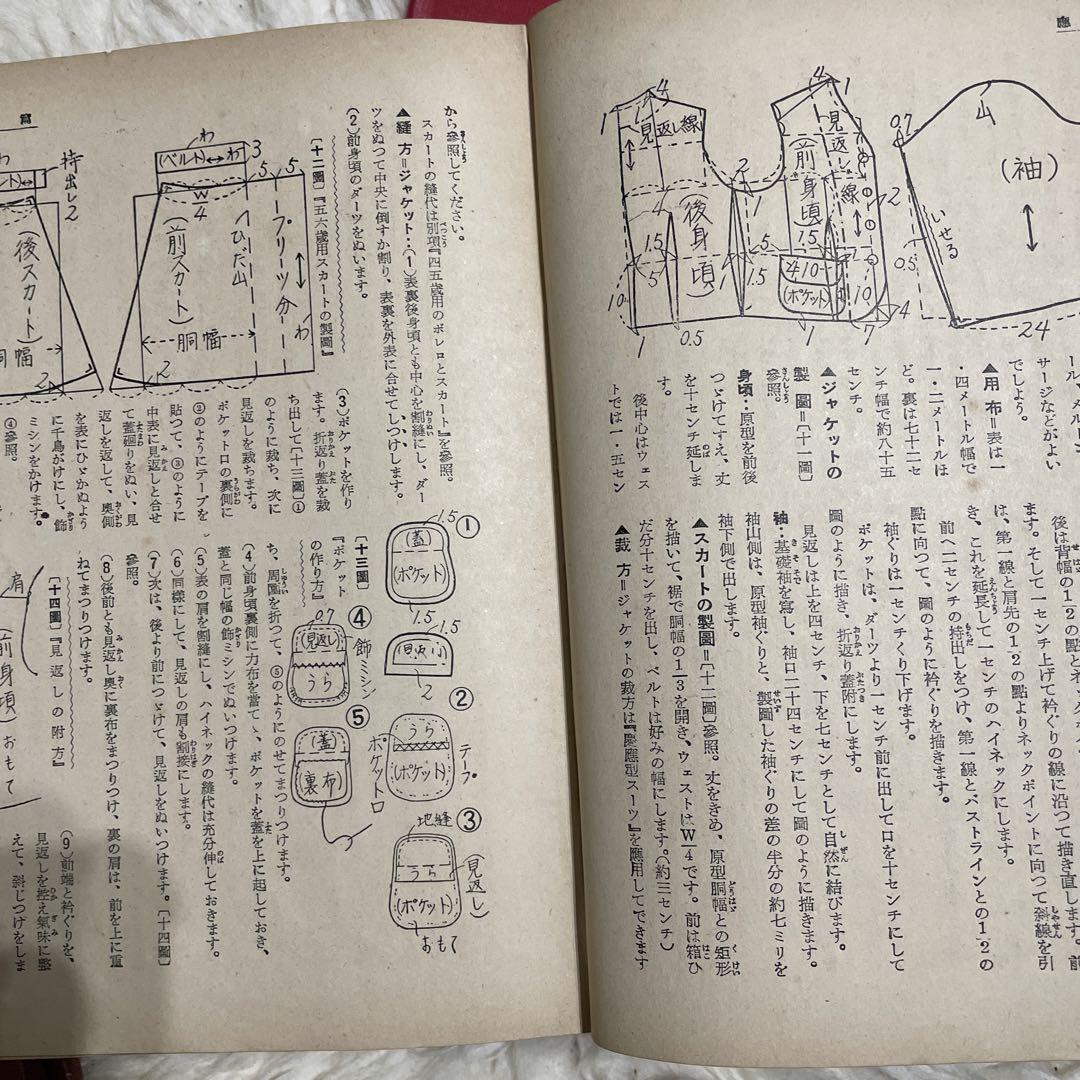 ール、メルトン
サージなどがよい
でしよう。
▲用 布＝表は一
・四メートル幅で
一・二メートルは
ど。裏は七十二セ
ンチ幅で約八十五
センチ。
▲ジャケットの
製 圖＝〔十一圖〕
參照。
身頃‥原型を前後
つゞけてすえ、丈
を十センチ延しま
す。
後中心はウェス
トでは一・五セン
ます。そして一センチ上げて衿ぐりの線に沿つて描き直します。前
は、第一線と肩先の1/2の點よりネックポイントに向つて斜線を引
き、これを延長して一センチのハイネックにします。
前へ二センチの持出しをつけ、第一線とバストラインとの1/2の
點に向つて、圖のように衿ぐりを描きます。
袖ぐりは一センチくり下げます。
ポケットは、ダーツより一センチ前に出して口を十センチにして
圖のように描き、折返り蓋附にします。
見返しは上を四センチ、下を七センチとして自然に結びます。
袖‥基礎袖を寫し、袖口二十四センチにして圖のように描きます。
袖山側は、原型袖ぐりと、製圖した袖ぐりの差の半分の約七ミリを
袖下側で出します。
▲スカートの製圖＝〔十二圖〕參照。丈をきめ、原型胴幅との矩形
を描いて、裾で胴幅の1/3を開き、ウェストはW/4です。前は箱ひ
だ分十センチを出し、ベルトは好みの幅にします。（約三センチ）
▲裁 方＝ジャケットの裁方は『慶應型スーツ』を應用してできます
見返し線
（後身頃）
（前身頃）
見返し線
（ポケット）
（袖）
山
いせる
0.7
0.5
24
から參照してください。
スカートの縫代は別項『四五歳用のボレロとスカート』を參照。
▲縫 方＝ジャケット‥（1）表裏後身頃とも中心を割縫にし、ダー
ツをぬつて中央に倒すか割り、表裏を外表に合せてしつけします。
（2）前身頃のダーツをぬいます。
〔十二圖〕『五六歳用スカートの製圖』
（ベルト）
わ
持出し2
（前スカート）
（後スカート）
ひだ山
プリーツ分
胴幅
W/4
（3）ポケットを作り
ます。折返り蓋を裁
ち出して〔十三圖〕①
のように裁ち、次に
見返しを裁ちます。
ポケット口の裏側に
②のようにテープを
貼つて、③のように
中表に見返しと合せ
て蓋廻りをぬい、見
返しを返して、奥側
を表にひゞかぬよう
に千鳥がけにし、飾
ミシンをかけます。
④參照。
〔十三圖〕
『ポケット
の作り方』
①
（蓋）
（ポケット）
1.5
②
うら
（ポケット）
テープ
ポケット口
③
地縫
うら
見返し
（ポケット）
おもて
④
飾ミシン
0.7
（見返し）
うら
⑤
（蓋）
（裏布）
ち、周圍を折つて、⑤のようにのせてまつりつけます。
（4）前身頃裏側に力布を當て、ポケットを蓋を上に起しておき、
蓋と同じ幅の飾ミシンでぬいつけます。
（5）表の肩を割縫にし、ハイネックの縫代は充分伸しておきます。
（6）同樣にして、見返しの肩も割接にします。
（7）次は、後より前につゞけて、見返しをぬいつけます。〔十四圖〕
參照。
（8）後前とも見返し奥に裏布をまつりつけ、裏の肩は、前を上に重
ねてまつりつけます。
〔十四圖〕『見返しの附方』
肩
（前身頃）
おもて
（9）前端と衿ぐりを、
見返しを控え氣味に整
えて、斜じつけをしま